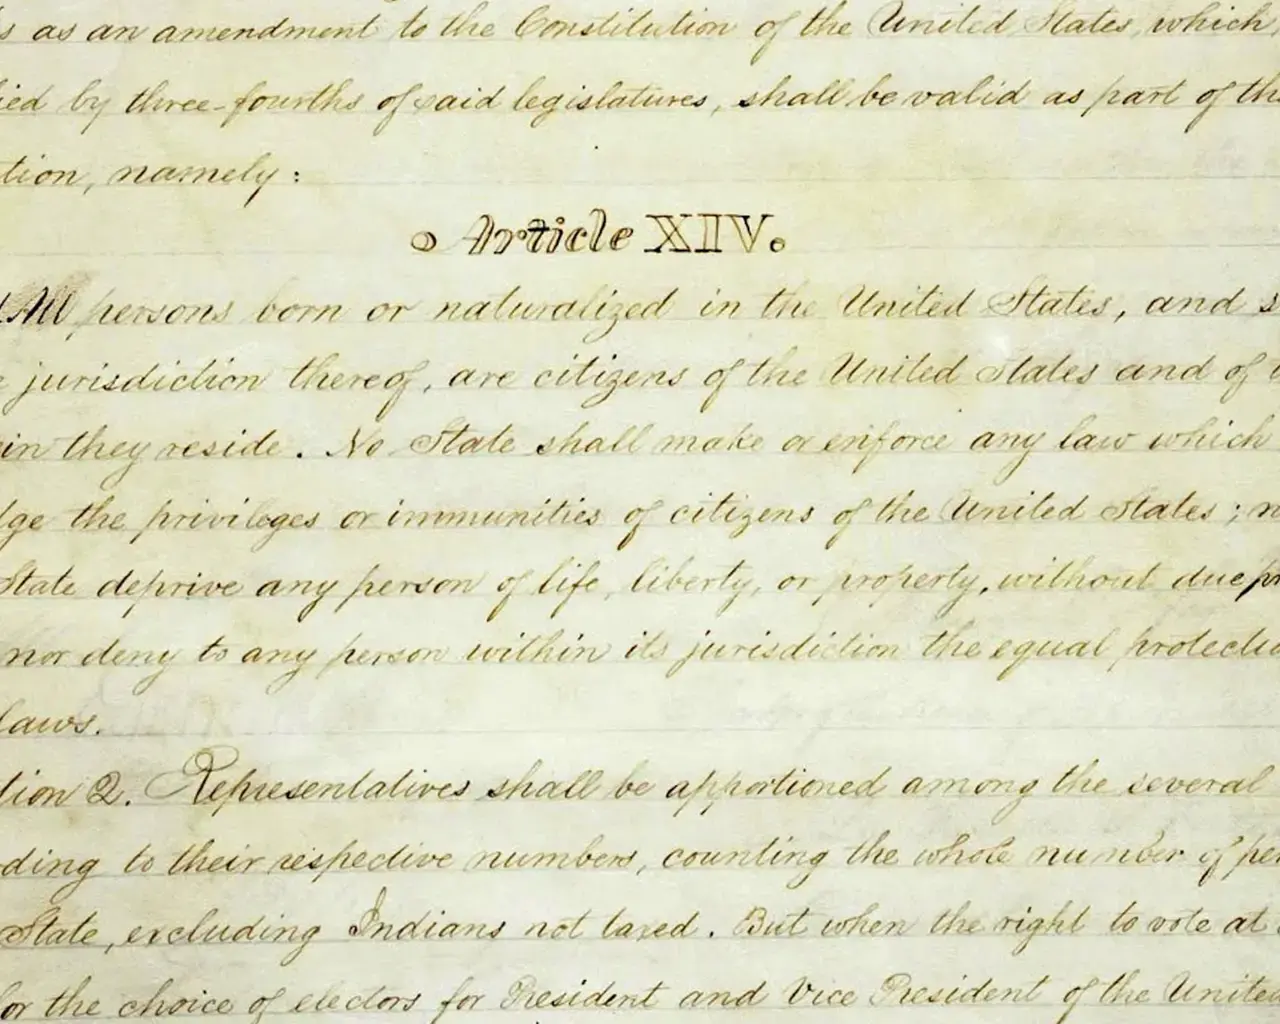 s as an amendment to the Constitution of the United States, which,
ied by three-fourths of said legislatures, shall be valid as part of th
tion, namely:
Article XIV.
All persons born or naturalized in the United States, and s
e jurisdiction thereof, are citizens of the United States and of
in they reside. No State shall make or enforce any law which
dge the privileges or immunities of citizens of the United States; n
State deprive any person of life, liberty, or property, without due pr
nor deny to any person within its jurisdiction the equal protectio
laws.
tion 2. Representatives shall be apportioned among the several
ding to their respective numbers, counting the whole number of per
State, excluding Indians not taxed. But when the right to vote at
for the choice of electors for President and Vice President of the United